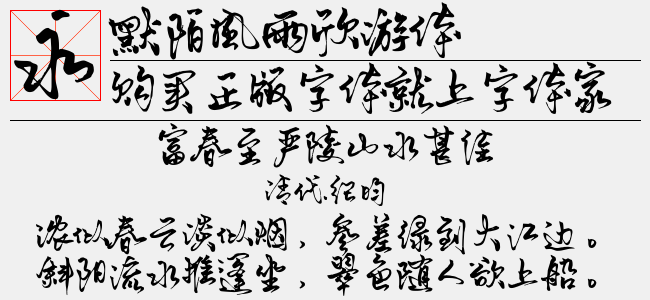 永
默陌風雨欣游体
购买正版字体就上字体家
富春至严陵山水甚佳
清代.纪昀
浓似春云淡似烟，参差绿到大江边。
斜阳流水推篷坐，翠色随人欲上船。